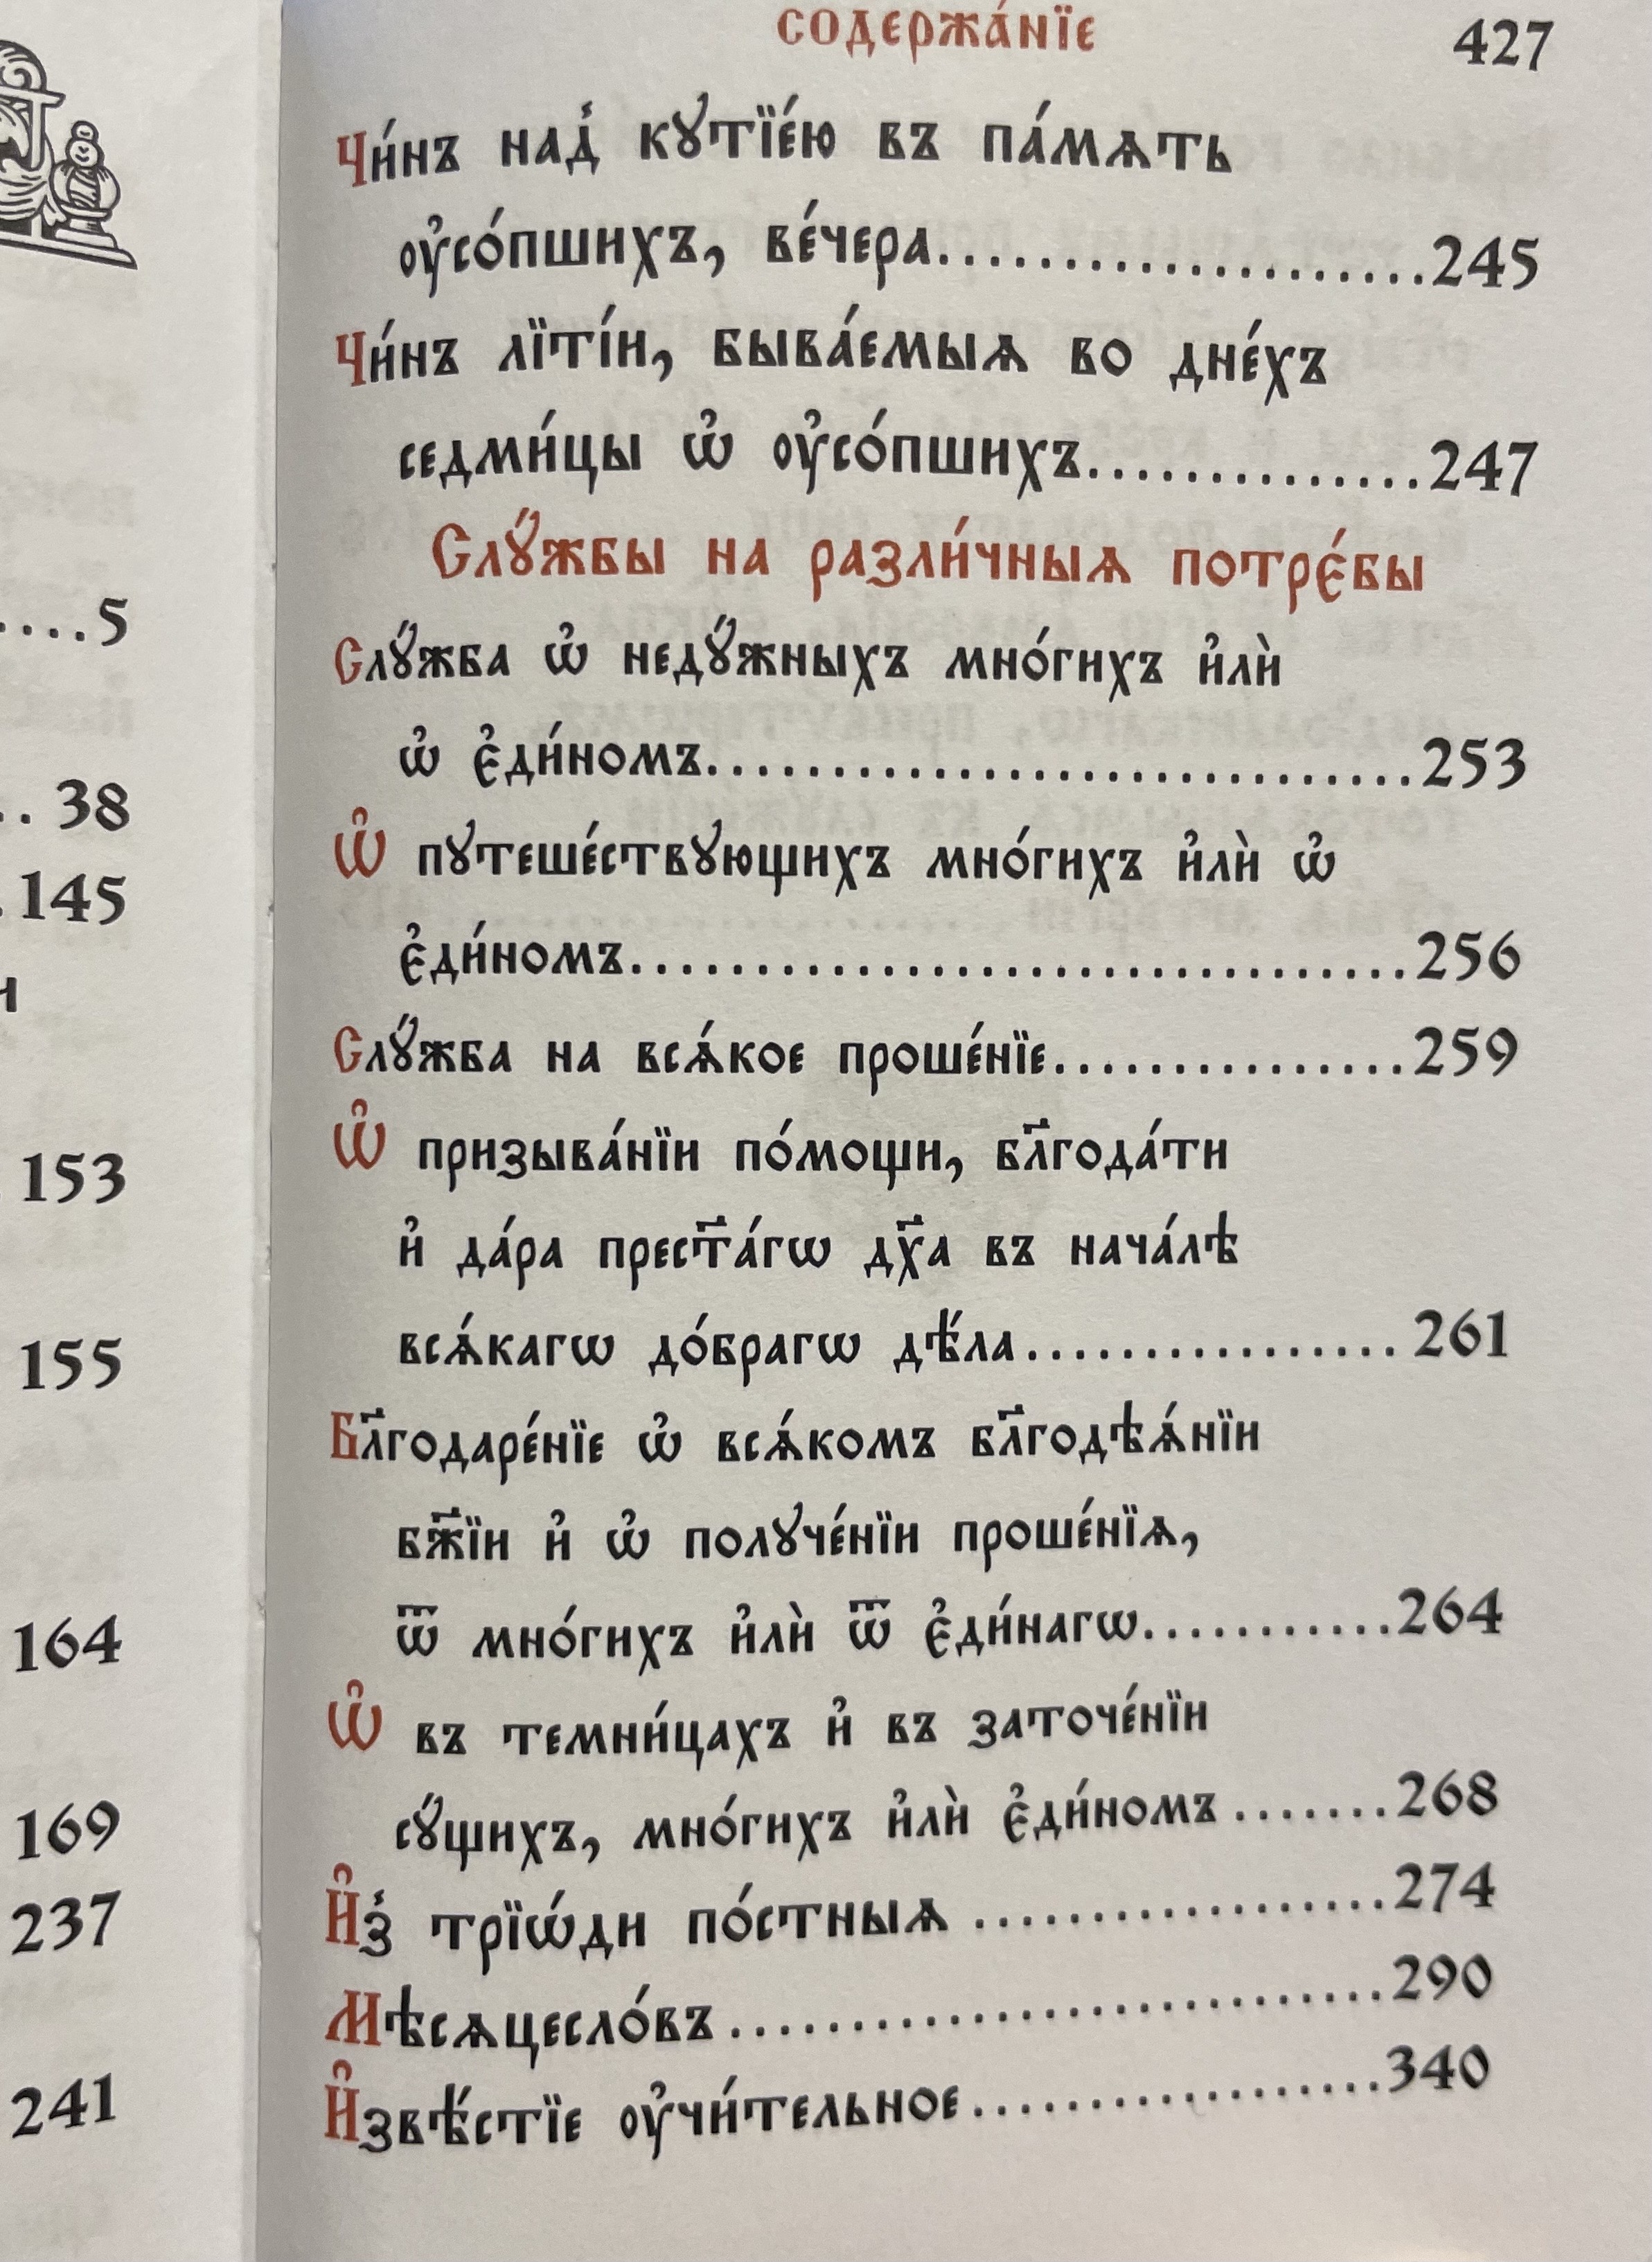 ....5
.. 38
.145
и
153
155
164
169
237
241
СОДЕРЖА́НЇЕ 427
Чи́нъ над̾ кꙋтїе́ю въ па́мѧть
оу҆со́пшихъ, ве́чера....................245
Чи́нъ лїті́и, быва́емыѧ во дне́хъ
седми́цы ѡ҆ оу҆со́пшихъ..............247
Слꙋ́жбы на разли́чныѧ потрє́бы
Слꙋ́жба ѡ҆ недꙋ́жныхъ мно́гихъ и҆лѝ
ѡ҆ є҆ди́номъ..............................253
Ѡ҆ пꙋтеше́ствꙋющихъ мно́гихъ и҆лѝ ѡ҆
є҆ди́номъ.................................256
Слꙋ́жба на всѧ́кое проше́нїе...............259
Ѡ҆ призыва́нїи по́мощи, бл҃года́ти
и҆ да́ра прест҃а́гѡ дх҃а въ нача́лѣ
всѧ́кагѡ до́брагѡ дѣ́ла................261
Бл҃годаре́нїе ѡ҆ всѧ́комъ бл҃годѣѧ́нїи
бж҃їи и҆ ѡ҆ полꙋче́нїи проше́нїѧ,
ѿ мно́гихъ и҆лѝ ѿ є҆ди́нагѡ...........264
Ѡ҆ въ темни́цахъ и҆ въ заточе́нїи
сꙋ́щихъ, мно́гихъ и҆лѝ є҆ди́номъ.......268
И҆з̾ трїѡ́ди по́стныѧ..................274
Мѣсѧцесло́въ............................290
И҆звѣ́стїе оу҆чи́тельное.................340